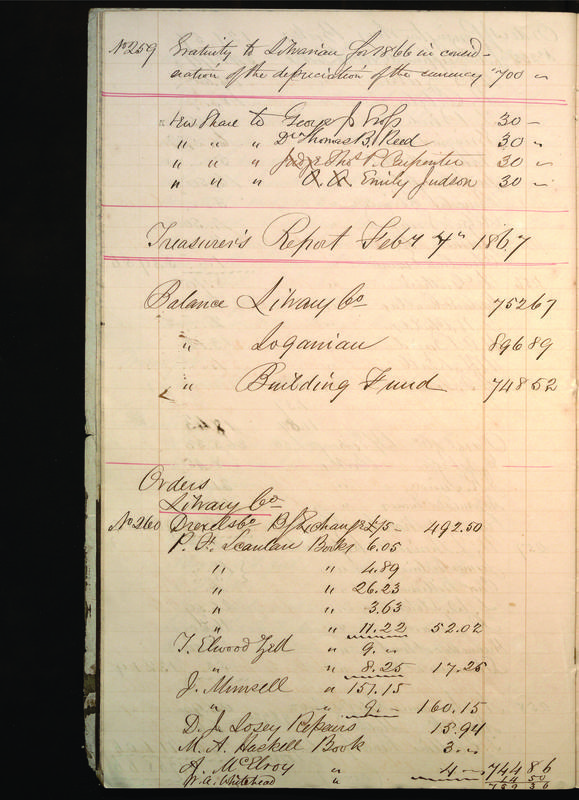 No 259 Gratuity to Librarian for 1866 in consid-
eration of the depreciation of the currency 700 "
New Share to George J Gross 30 -
" " " Dr Thomas B. Reed 30 "
" " " Judge Thos P. Carpenter 30 "
" " " Emily Judson 30 "
Treasurer's Report Feby 7th 1867
Balance Library Co 75267
" Loganian 89689
" Building Fund 74852
Orders
Library Co
No 260 Drexel & Co B/Exchange £75 - 492.50
P. F. Scanlan Books 6.05
" " 4.89
" " 26.23
" " 3.63
" " 11.22 52.02
T. Elwood Zell " 9. "
" " 8.25 17.25
J. Munsell " 151.15
" " 9. - 160.15
D. J. Losey Repairs 15.94
M. H. Haskell Book 3. "
A. McElroy " 4 - 74486
W. A. Whitehead "